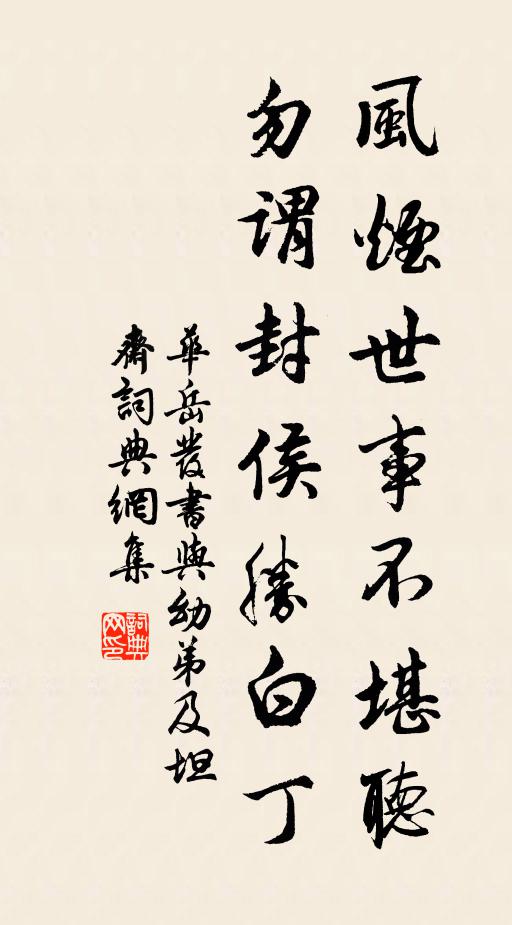 風煙世事不堪聽
勿謂封侯勝白丁
華岳發書與幼弟及坦
齋詞典網集
詞典网印